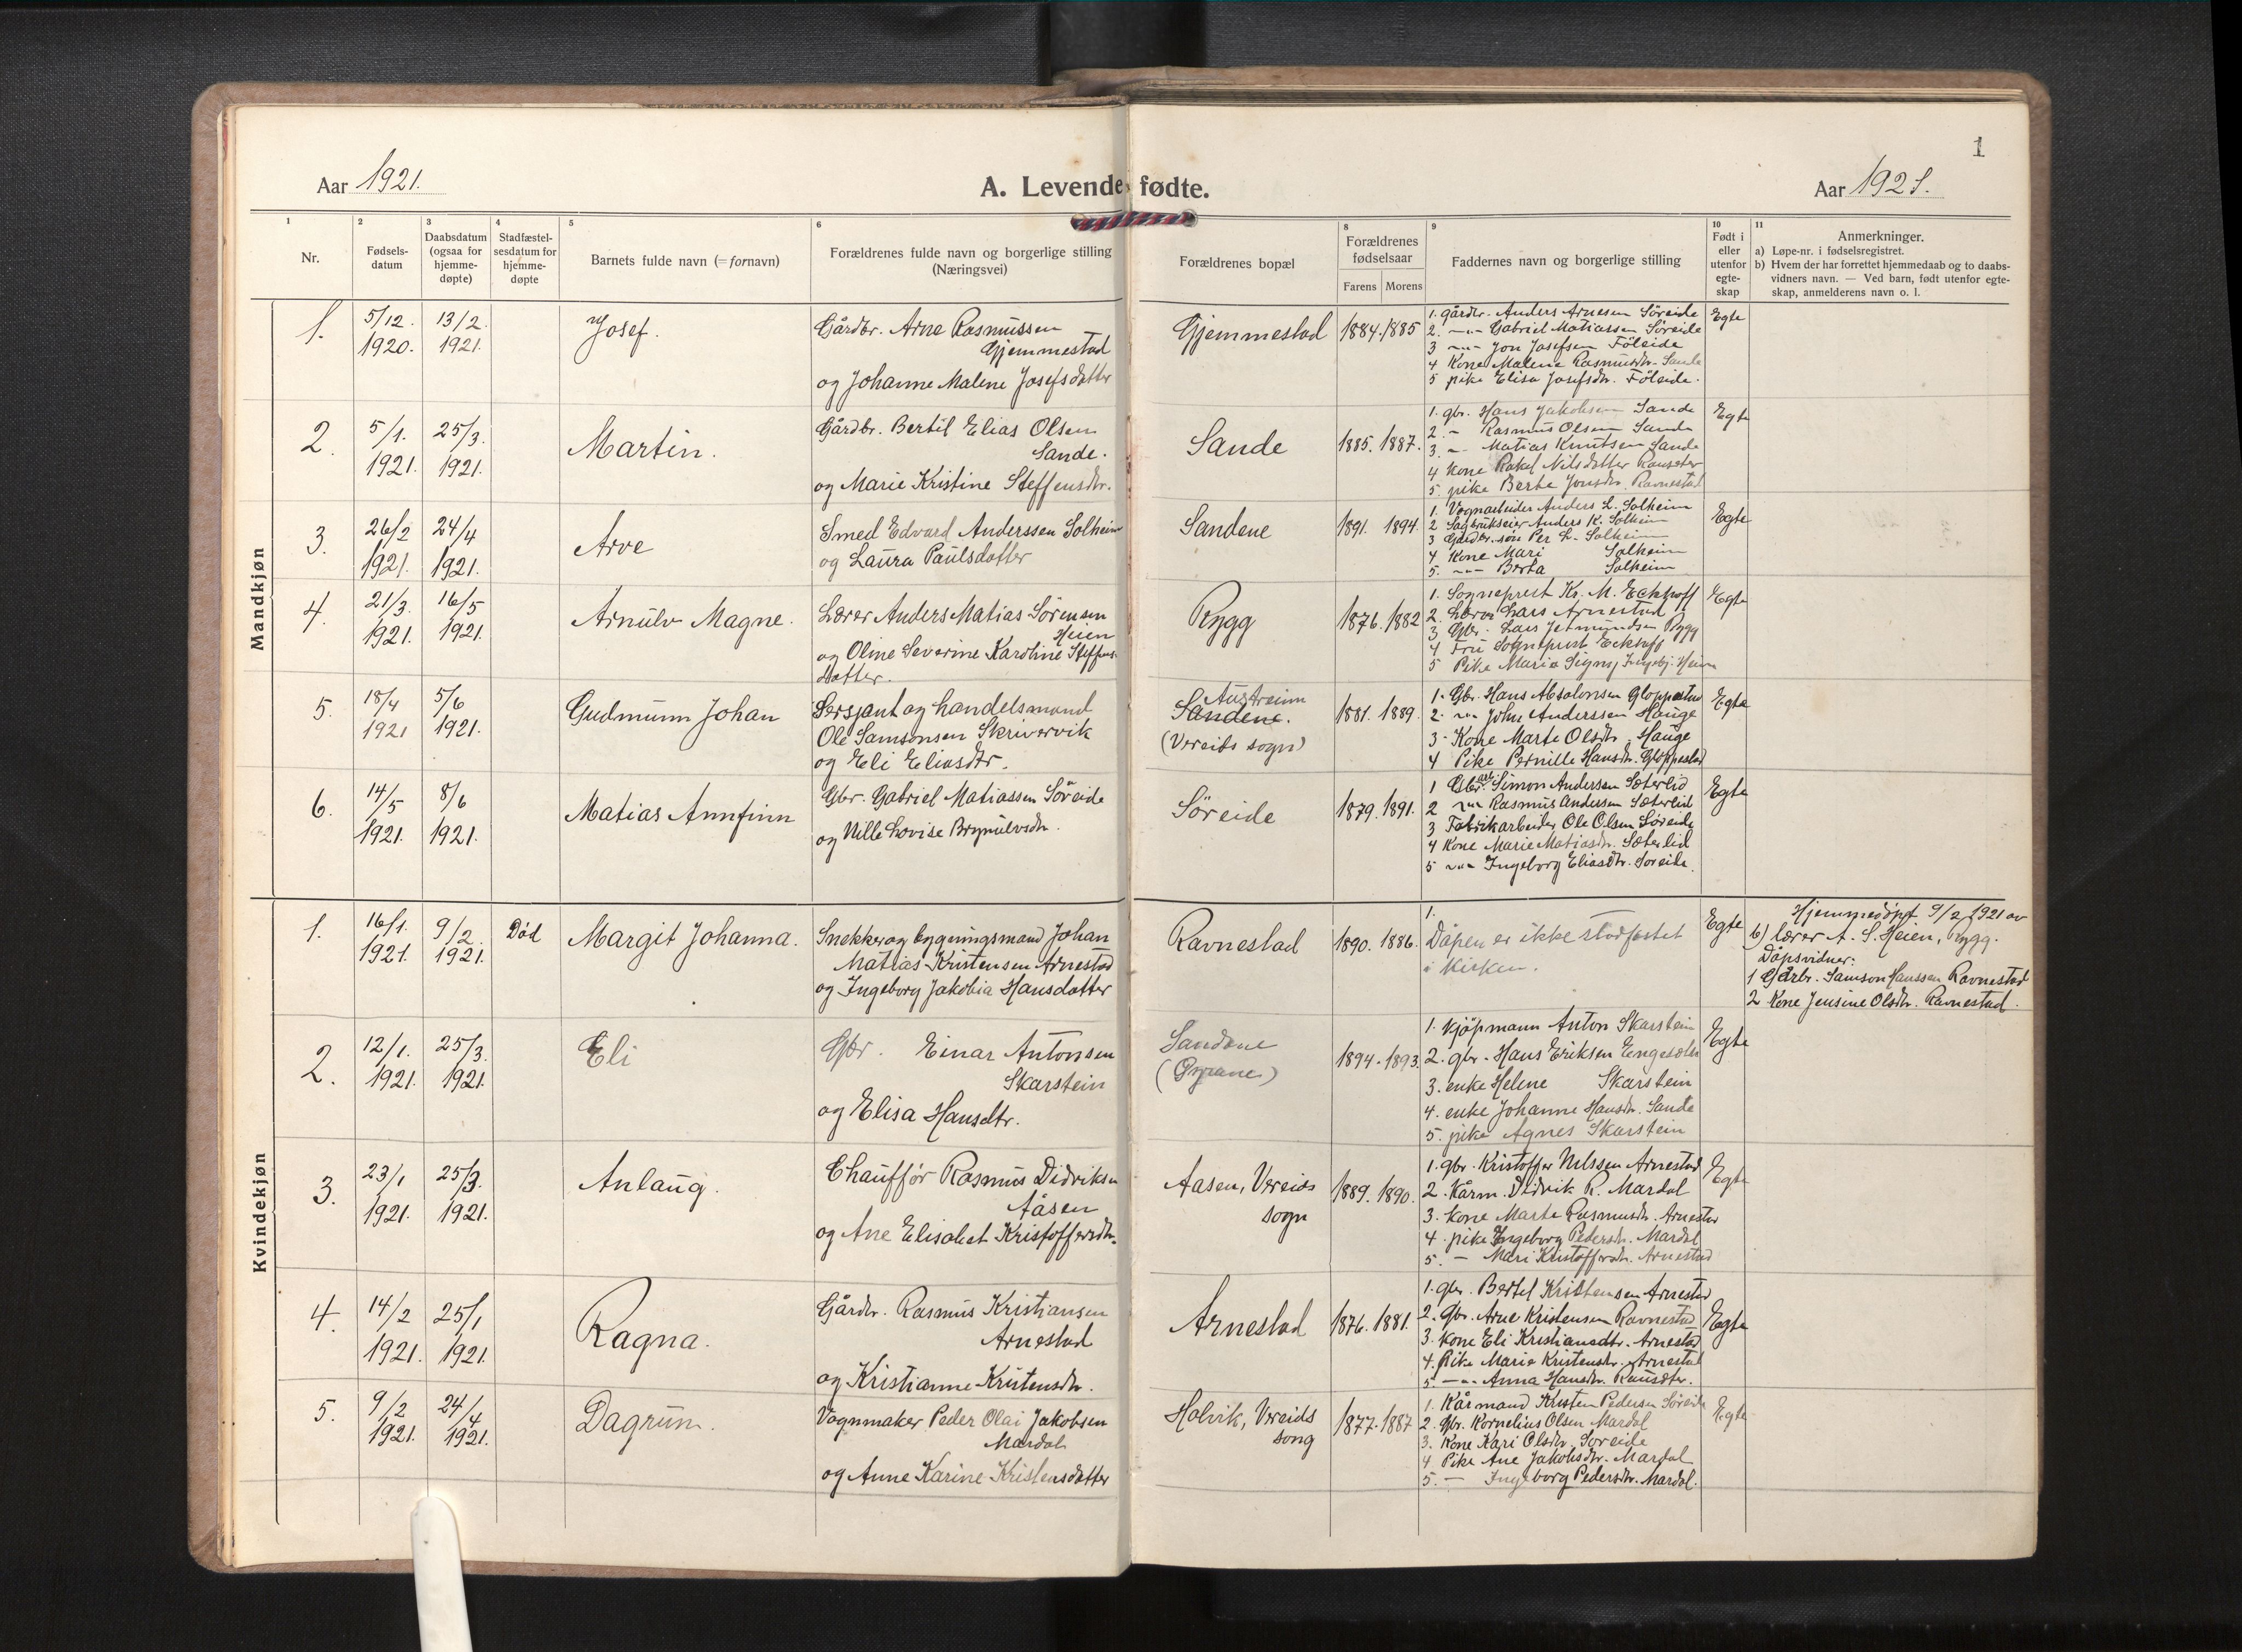 1
Aar 1921.
A. Levende fødte.
Aar 1921.
1
2
3
4
5
6
8
9
10
11
Nr.
Fødsels-
datum
Daabsdatum
(ogsaa for
hjemme-
døpte)
Stadfæstel-
sesdatum for
hjemme-
døpte
Barnets fulde navn (= fornavn)
Forældrenes fulde navn og borgerlige stilling
(Næringsvei)
Forældrenes bopæl
Forældrenes
fødselsaar
Farens Morens
Faddernes navn og borgerlige stilling
Født i
eller
utenfor
egte-
skap
Anmerkninger.
a) Løpe-nr. i fødselsregistret.
b) Hvem der har forrettet hjemmedaab og to daabs-
vidners navn. — Ved barn, født utenfor egte-
skap, anmelderens navn o. l.
Mandkjøn
1.
5/12.
1920.
13/2.
1921.
Josef.
Gårdbr. Arne Rasmussen
Gjemmestad
og Johanne Malene Josefsdatter
Gjemmestad
1884. 1885
1. gårdbr. Anders Arnesen Söreide
2. -"- Gabriel Matiassen Söreide
3 -"- Jon Josefsen Föleide
4 Kone Malene Rasmusdtr. Sande
5 pike Elisa Josefsdtr. Föleide.
Egte
2.
5/1.
1921.
25/3.
1921.
Martin.
Gårdbr. Bertil Elias Olsen
Sande.
og Marie Kristine Steffensdtr.
Sande
1885. 1887.
1. gbr. Hans Jakobsen Sande
2. - Rasmus Olsen Sande
3. - Matias Knutsen Sande
4 Kone Rakel Nilsdatter
5. pike Berte Jonsdtr. Ravnestad
Egte
3.
26/2
1921.
24/4
1921.
Arve
Smed Edvard Anderssen Solheim
og Laura Paulsdatter
Sandene
1891. 1894.
1. Vognarbeider Anders L. Solheim
2 Sagbrukseier Anders K. Solheim
3 Gårdbr. sön Per L. Solheim
4 Kone Mari Solheim
5. -"- Berta Solheim
Egte
4.
21/3.
1921.
16/5
1921.
Arnulv Magne.
Lærer Anders Matias Sörensen
Heien
og Oline Severine Karoline Steffens-
datter.
Rygg
1876. 1882
1. Sogneprest Kr. M. Eckhoff
2. Lærer Lars Arnestad
3 Gbr. Lars Jetmundsen Rygg
4 Fru Sogneprest Eckhoff
5 Pike Maria Signy Ingebj. Heien
Egte
5.
18/4
1921
5/6
1921.
Gudmunn Johan
Sersjant og handelsmand
Ole Samsonsen Skrivervik
og Eli Eliasdtr.
Austreim
Sandene.
(Vereids sogn)
1881. 1889.
1. Gbr. Hans Absalonsen Gloppestad
2. -"- John Anderssen Hauge
3. Kone Marte Olsdtr. Hauge
4 Pike Pernille Hansdtr. Gloppestad
Egte
6.
14/5
1921.
8/6
1921.
Matias Annfinn
Gbr. Gabriel Matiassen Söreide
og Nille Lovise Brynulvsdtr.
Söreide
1879. 1891.
1 Simon Andersen Sæterlid
2 -"- Rasmus Andersen Sæterlid
3 Fabrikarbeider Ole Olsen Söreide
4 Kone Marie Matiasdtr. Sæterlid
5 -"- Ingeborg Eliasdtr. Soreide.
Egte
Kvindekjøn
1.
16/1.
1921.
9/2.
1921.
Död
Margit Johanna.
Snekker og bygningsmand Johan
Matias Kristensen Arnestad
og Ingeborg Jakobia Hansdatter
Ravnestad
1890. 1886.
1.
Dåpen er ikke stadfestet
i kirken.
Egte
Hjemmedöpt 9/2 1921 av
b) lærer A. S. Heien, Rygg.
Dåpsvidner:
1 Gårbr. Samson Hanssen Ravnestad
2 Kone Jensine Olsdtr. Ravnestad.
2.
12/1.
1921.
25/3.
1921.
Eli
Gbr. Einar Antonsen
Skarstein
og Elisa Hansdtr.
Sandene
1894. 1893.
1. Kjöpmann Anton Skarstein
2. gbr. Hans Eriksen
3. enke Helene Skarstein
4. enke Johanne Hansdtr. Sande
5. pike Agnes Skarstein
Egte
3.
23/1
1921.
25/3.
1921.
Anlaug.
Chauffør Rasmus Didriksen
Ååsen
og Ane Elisabet Kristoffersdtr.
Aasen, Vereids
sogn
1889. 1890.
1. gbr. Kristoffer Nilssen Arnestad
2. Kårm. Didrik R. Mardal
3. kone Marte Rasmusdtr. Arnestad
4. pike Ingeborg Pedersdtr. Mardal
5. - Mari Kristoffersdtr. Arnestad
Egte
4.
14/2
1921.
25/1
1921.
Ragna.
Gårdbr. Rasmus Kristiansen
Arnestad
og Kristianne Kristensdtr.
Arnestad
1876. 1881.
1. gbr. Bertel Kristensen Arnestad
2. Gbr. Arne Kristensen Ravnestad
3. Kone Eli Kristiansdtr. Arnestad
4. Pike Marie Kristensdtr. Arnestad
5. -"- Anna Hansdtr.
Egte
5.
9/2
1921.
24/4
1921.
Dagrun.
Vognmaker Peder Olai Jakobsen
Mardal
og Anne Karine Kristensdatter
Holvik, Vereids
song
1877. 1887
1. Kårmand Kristen Pedersen Söreide
2. Gbr. Kornelius Olsen Mardal
3. Kone Kari Olsdtr. Soreide
4 Pike Ane Jakobsdtr. Mardal
5. - Ingeborg Pedersdtr. Mardal.
Egte